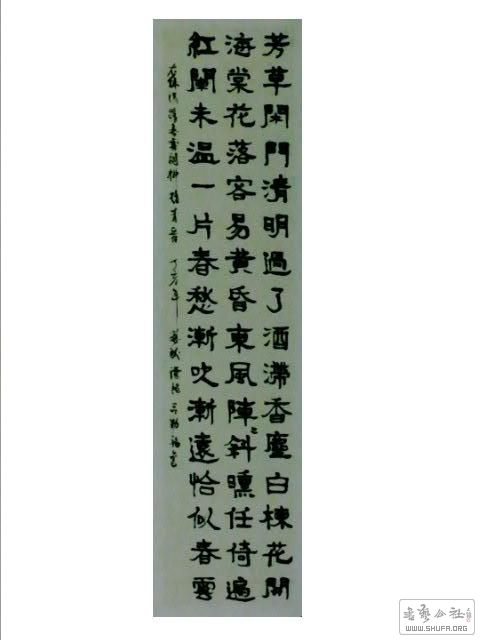 芳草閑門清明過了酒滯香塵白楝花開
海棠花落容易黄昏東風陣〻斜曛任倚遍
紅闌未温一片春愁漸吹漸遠恰似春雲
丁亥年
書藝公社
www.SHUFA.ORG